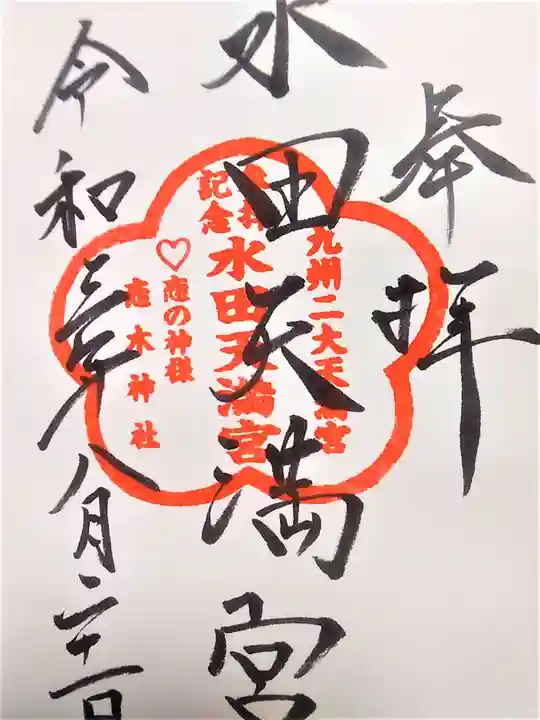 奉拝
水田天満宮
令和三年八月二十一日
九州二大天満宮
参拝記念
水田天満宮
♡恋の神様
恋木神社